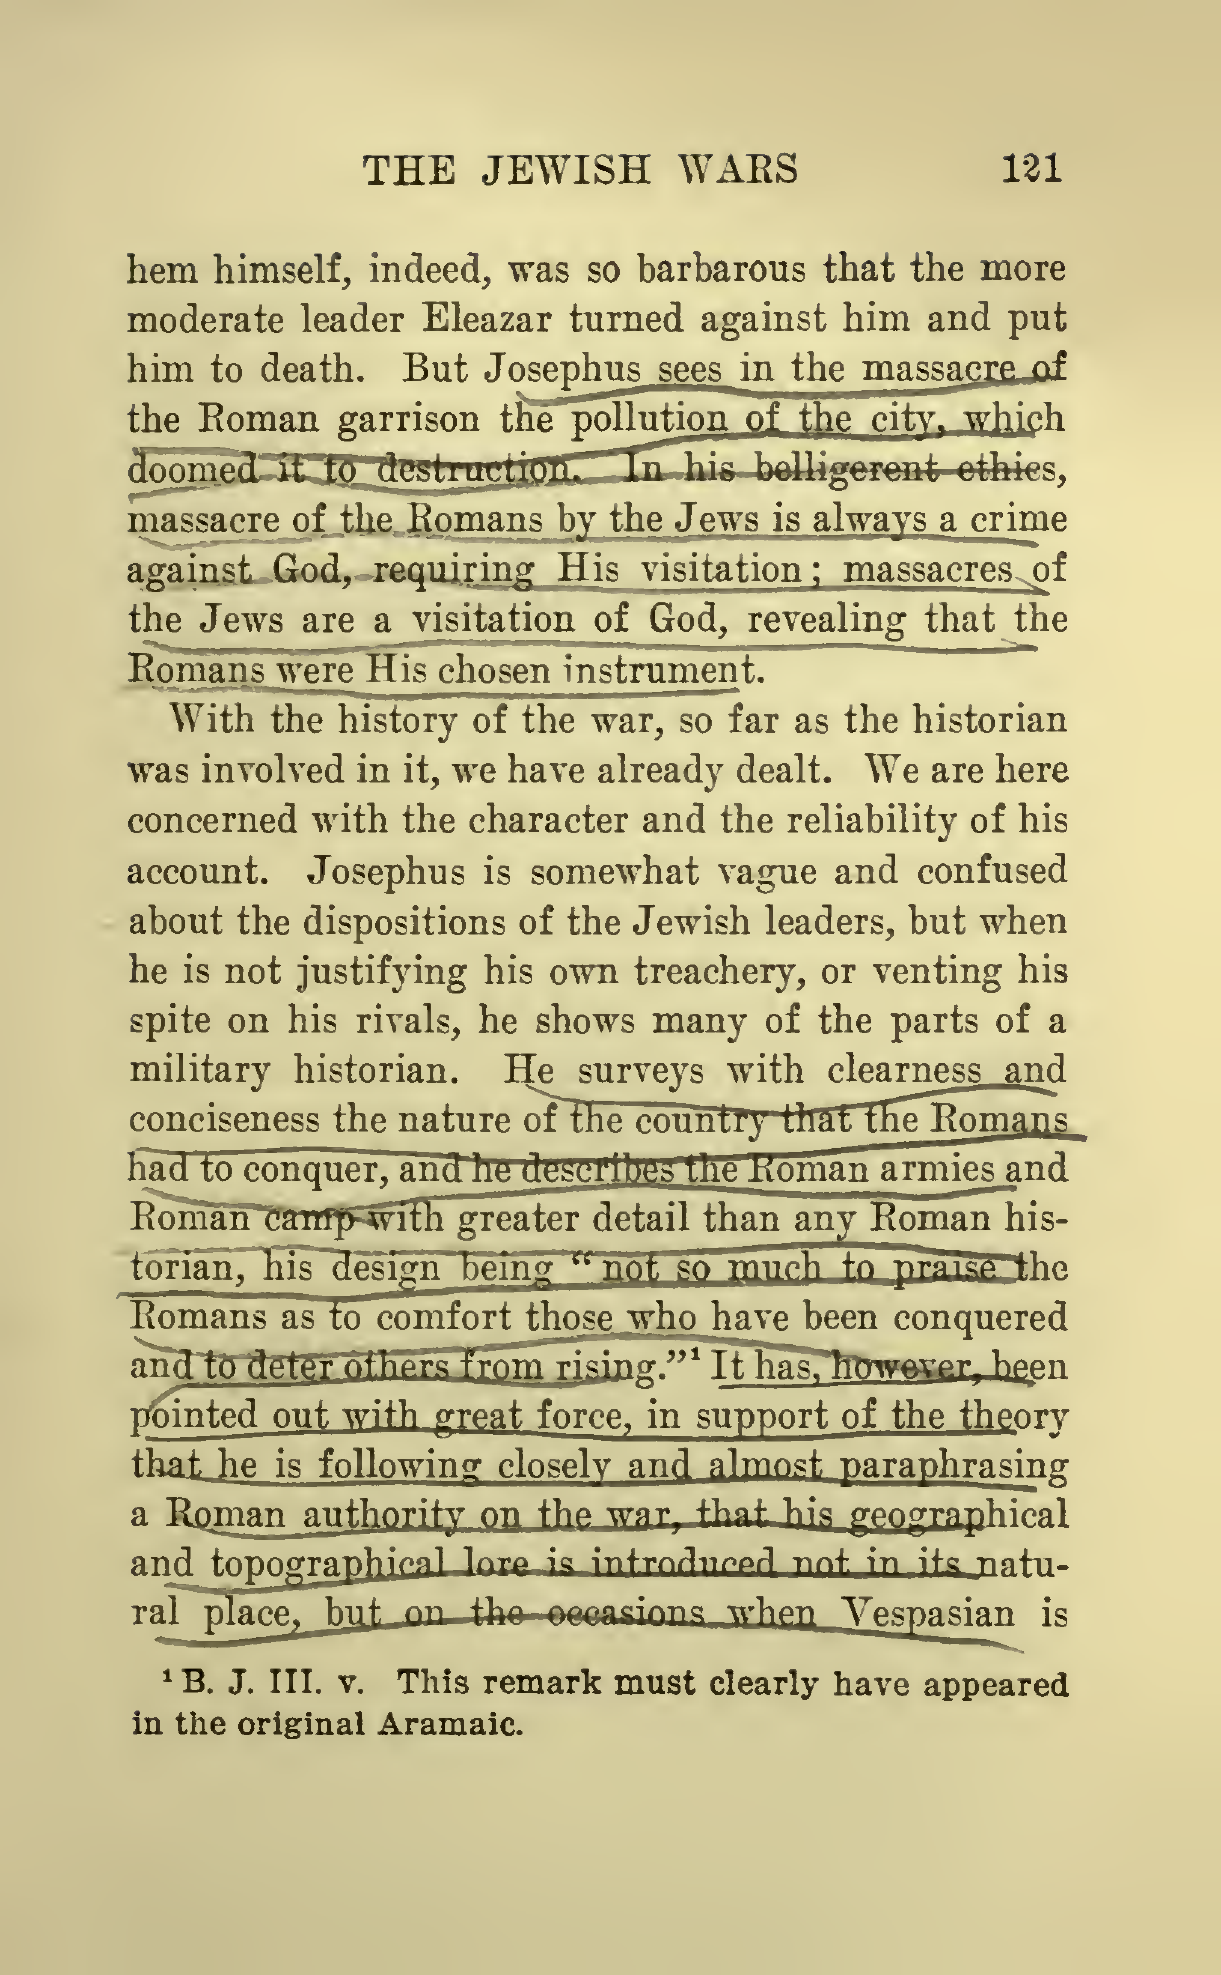 THE JEWISH WARS 121
hem himself, indeed, was so barbarous that the more
moderate leader Eleazar turned against him and put
him to death. But Josephus sees in the massacre of
the Roman garrison the pollution of the city, which
doomed it to destruction. In his belligerent ethics,
massacre of the Romans by the Jews is always a crime
against God, requiring His visitation; massacres of
the Jews are a visitation of God, revealing that the
Romans were His chosen instrument.
With the history of the war, so far as the historian
was involved in it, we have already dealt. We are here
concerned with the character and the reliability of his
account. Josephus is somewhat vague and confused
about the dispositions of the Jewish leaders, but when
he is not justifying his own treachery, or venting his
spite on his rivals, he shows many of the parts of a
military historian. He surveys with clearness and
conciseness the nature of the country that the Romans
had to conquer, and he describes the Roman armies and
Roman camp with greater detail than any Roman his-
torian, his design being “not so much to praise the
Romans as to comfort those who have been conquered
and to deter others from rising.”¹ It has, however, been
pointed out with great force, in support of the theory
that he is following closely and almost paraphrasing
a Roman authority on the war, that his geographical
and topographical lore is introduced not in its natu-
ral place, but on the occasions when Vespasian is
¹ B. J. III. v. This remark must clearly have appeared
in the original Aramaic.